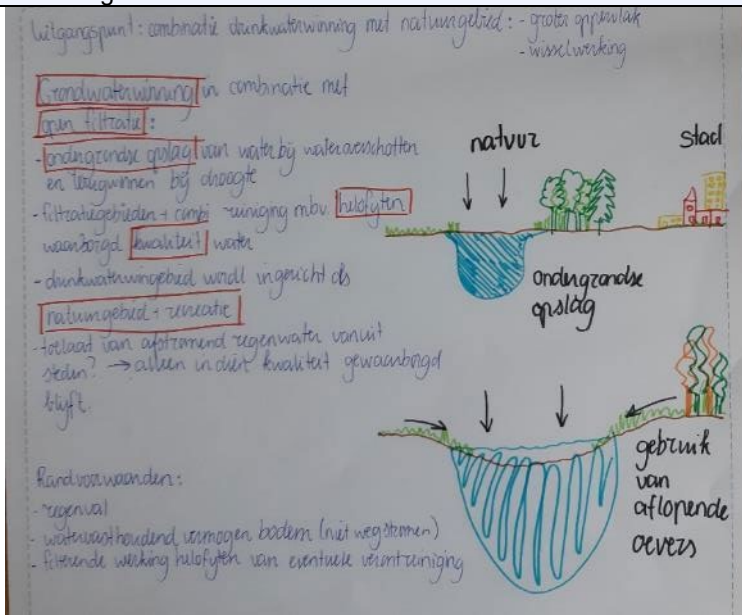 Uitgangspunt: combinatie drinkwaterwinning met natuurgebied: - groter oppervlak
- wisselwerking
Grondwaterwinning in combinatie met
open filtratie:
- ondergrondse opslag van water bij wateroverschotten
en terugwinnen bij droogte
- filtratiegebieden + combi reiniging mbv. helofyten
waarborgd kwaliteit water
- drinkwaterwingebied wordt ingericht als
natuurgebied + recreatie
- toelaat van afstromend regenwater vanuit
steden? → alleen indien kwaliteit gewaarborgd
blijft.
Randvoorwaarden:
- regenval
- watervasthoudend vermogen bodem (niet wegstromen)
- filterende werking helofyten van eventuele verontreiniging
natuur
stad
ondergrondse
opslag
gebruik
van
aflopende
oevers